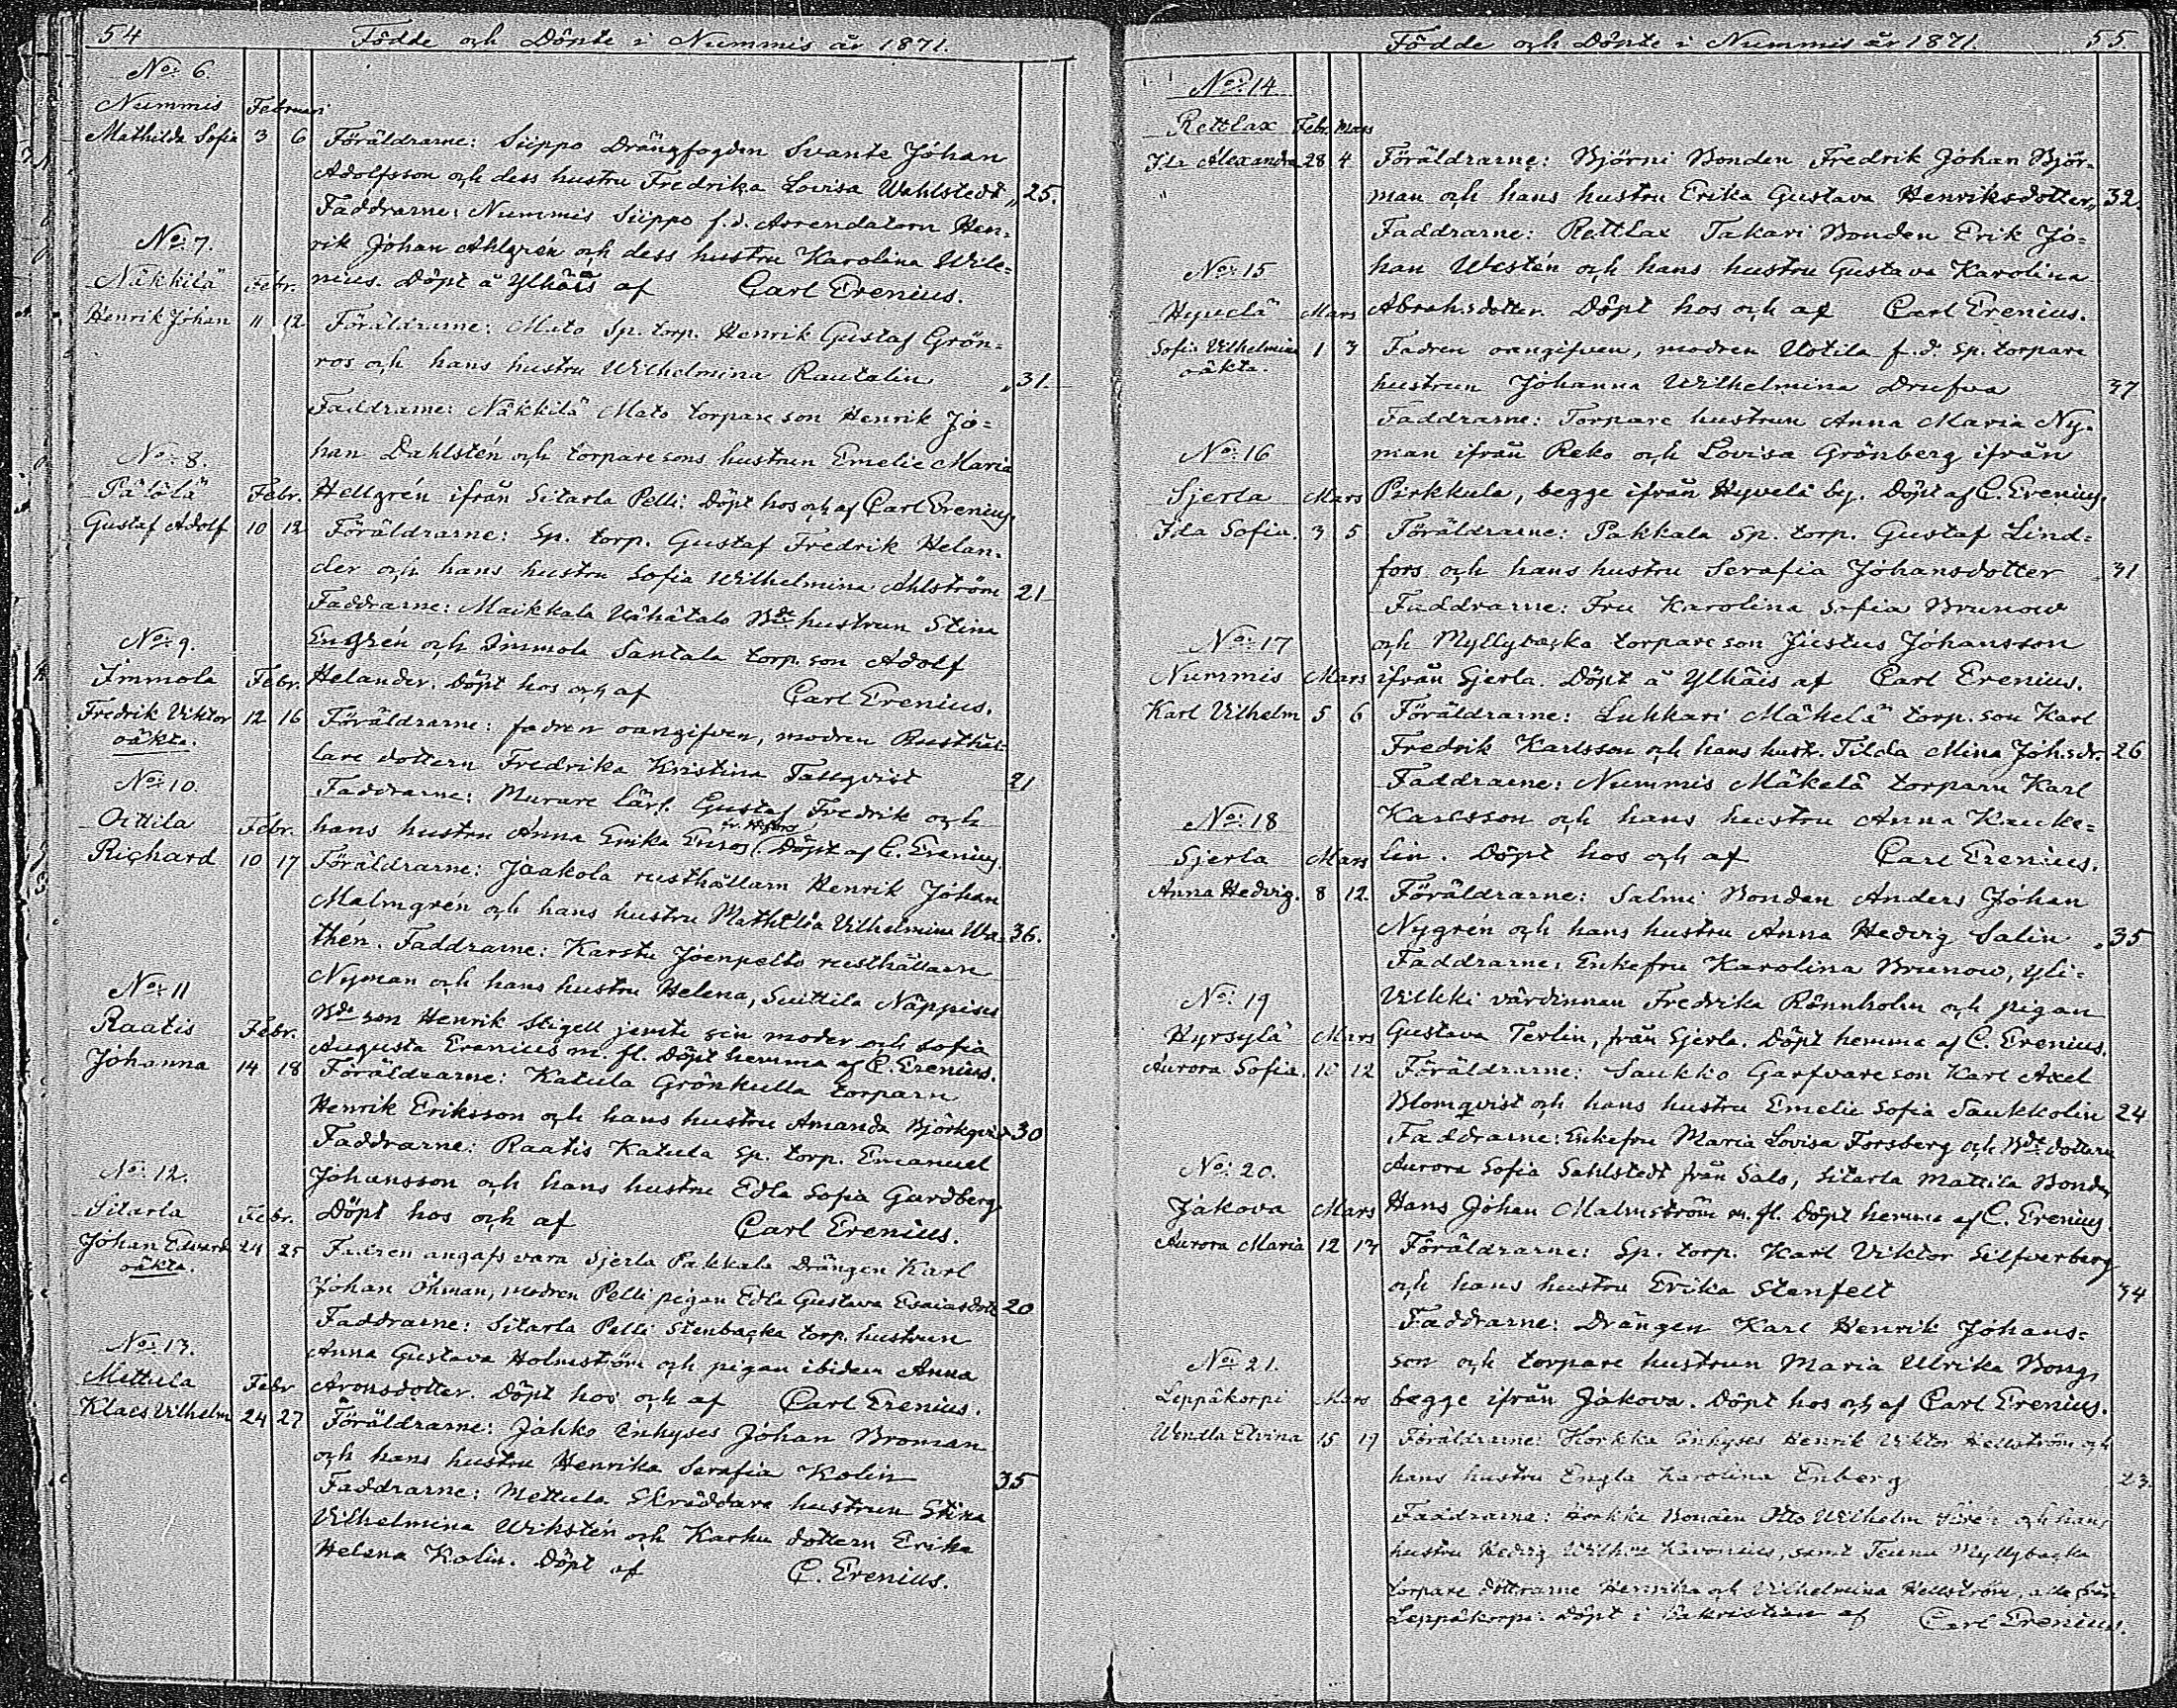 54
Födde och Döpte i Nummis år 1871.
No: 6.
Nummis Februari
Mathilda Sofia 3 6 Föräldrarne: Siippo Drängfogden Svante Johan
Adolfsson och dess hustru Fredrika Lovisa Wahlstedt „ 25.
Faddrarne: Nummis Siippo f.d. Arrendatorn Hen=
No: 7.
rik Johan Ahlgrén och dess hustru Karolina Wile=
Näkkilä Febr. nius. Döpt å Ylhäis af Carl Erenius.
Henrik Johan 11 12 Föräldrarne: Mato Sp. torp. Henrik Gustaf Grön=
ros och hans hustru Wilhelmina Rautalin „ 31
Faddrarne: Näkkilä Mato torpare son Henrik Jo=
No: 8.
han Dahlstén och torparesons hustrun Emelie Maria
Pälölä Febr. Hellgrén ifrån Sitarla Pelli. Döpt hos och af Carl Erenius.
Gustaf Adolf 10 12 Föräldrarne: Sp. torp. Gustaf Fredrik Helan=
der och hans hustru Sofia Wilhelmina Ahlström 21
Faddrarne: Maikkala Vähätalo Bde hustrun Stina
No: 9.
Engrén och Immola Santala torp. son Adolf
Immola Febr. Helander. Döpt hos och af Carl Erenius.
Fredrik Viktor 12 16 Föräldrarne: fadren oangifven, modren Rusthål=
oäkta.
lare dottern Fredrika Kristina Tallqvist 21
No: 10.
Faddrarne: Murare lärl. Gustaf Fredrik och
Oittila Febr. hans hustru Anna Erika Enros. Döpt af C. Erenius.
Richard 10 17 Föräldrarne: Jaakola rusthållarn Henrik Johan
Malmgrén och hans hustru Mathilda Vilhelmina Wa= 36.
thén. Faddrarne: Karstu Joenpelto rusthållarn
Nyman och hans hustru Helena, Suittila Näppises
No: 11
Bde son Henrik Stigell jemte sin moder och Sofia
Raatis Febr. Augusta Erenius m. fl. Döpt hemma af C. Erenius.
Johanna 14 18 Föräldrarne: Katula Grönkulla torparn
Henrik Eriksson och hans hustru Amanda Björkqvist 30
Faddrarne: Raatis Katula Sp. torp. Emanuel
No: 12.
Johansson och hans hustru Edla Sofia Gardberg
Sitarla Febr. Döpt hos och af Carl Erenius.
Johan Edvard 24 25 Fadren angafs vara Sjerla Pakkala Drängen Karl
oäkta.
Johan Öhman, modren Pelli pigan Edla Gustava Esaiasdott. 20
Faddrarne: Sitarla Pelli Stenbacka torp. hustrun
No: 13.
Anna Gustava Holmström och pigan ibidem Anna
Mettula Febr. Aronsdotter. Döpt hos och af Carl Erenius.
Klaes Vilhelm 24 27 Föräldrarne: Jahko Inhyses Johan Broman
och hans hustru Henrika Serafia Kolin 35
Faddrarne: Mettula Skräddare hustrun Stina
Vilhelmina Wikstén och Karhu dottern Erika
Helena Kolin. Döpt af C. Erenius.
Födde och Döpte i Nummis år 1871. 55
No: 14
Rettlax Febr. Mars
Ida Alexandra 28 4 Föräldrarne: Björni Bonden Fredrik Johan Björ=
man och hans hustru Erika Gustava Henriksdotter „ 32.
Faddrarne: Rettlax Takari Bonden Erik Jo=
No: 15
han Westén och hans hustru Gustava Karolina
Hyvelä Mars Abrahsdotter. Döpt hos och af Carl Erenius.
Sofia Vilhelmina 1 3 Fadren oangifven, modren Uotila f.d. Sp. torpare
oäkta.
hustrun Johanna Wilhelmina Drufva 37
Faddrarne: Torpare hustrun Anna Maria Ny=
No: 16
man ifrån Reko och Lovisa Grönberg ifrån
Sjerla Mars Pirkkula, begge ifrån Hyvelä by. Döpt af C. Erenius.
Ida Sofia. 3 5 Föräldrarne: Pakkala Sp. torp. Gustaf Lind=
fors och hans hustru Serafia Johansdotter 31
Faddrarne: Fru Karolina Sofia Brunow
No: 17
och Myllybacka torpare son Justus Johansson
Nummis Mars ifrån Sjerla. Döpt å Ylhäis af Carl Erenius.
Karl Vilhelm 5 6 Föräldrarne: Luhkari Mäkelä torp. son Karl
Fredrik Karlsson och hans hustr. Tilda Mina Joh.sdr. 26
Faddrarne: Nummis Mäkelä torparn Karl
No: 18
Karlsson och hans hustru Anna Kauke=
Sjerla Mars lin. Döpt hos och af Carl Erenius.
Anna Hedvig. 8 12. Föräldrarne: Salmi Bonden Anders Johan
Nygrén och hans hustru Anna Hedvig Salin „ 35
Faddrarne: Enkefru Karolina Brunow, Yli=
No: 19
Vilkki värdinnan Fredrika Rönnholm och pigan
Hyrsylä Mars Gustava Terlin, från Sjerla. Döpt hemma af C. Erenius.
Aurora Sofia. 10 12 Föräldrarne: Saukko Garfvare son Karl Axel
Blomqvist och hans hustru Emelie Sofia Saukkolin 24
Faddrarne: Enkefru Maria Lovisa Forsberg och Bde dottern
No: 20.
Aurora Sofia Sahlstedt från Salo, Sitarla Mattila Bonden
Jakova Mars Hans Johan Malmström m. fl. Döpt hemma af C. Erenius.
Aurora Maria 12 13 Föräldrarne: Sp. torp. Karl Viktor Silfverberg
och hans hustru Erika Stenfelt 34
Faddrarne: Drängen Karl Henrik Johans=
No: 21.
son och torpare hustrun Maria Ulrika Bong,
Leppäkorpi Mars begge ifrån Jakova. Döpt hos och af Carl Erenius.
Wendla Elvina 15 19 Föräldrarne: Horkka Inhyses Henrik Viktor Hellström och
hans hustru Engla Karolina Enberg 23.
Faddrarna: Horkka Bonden Otto Wilhelm och hans
hustru Hedvig samt Teunu Myllybacka
torpare döttrarne Henrika och Vilhelmina Hellström, alla från
Leppäkorpi. Döpt i Sakristian af Carl Erenius.